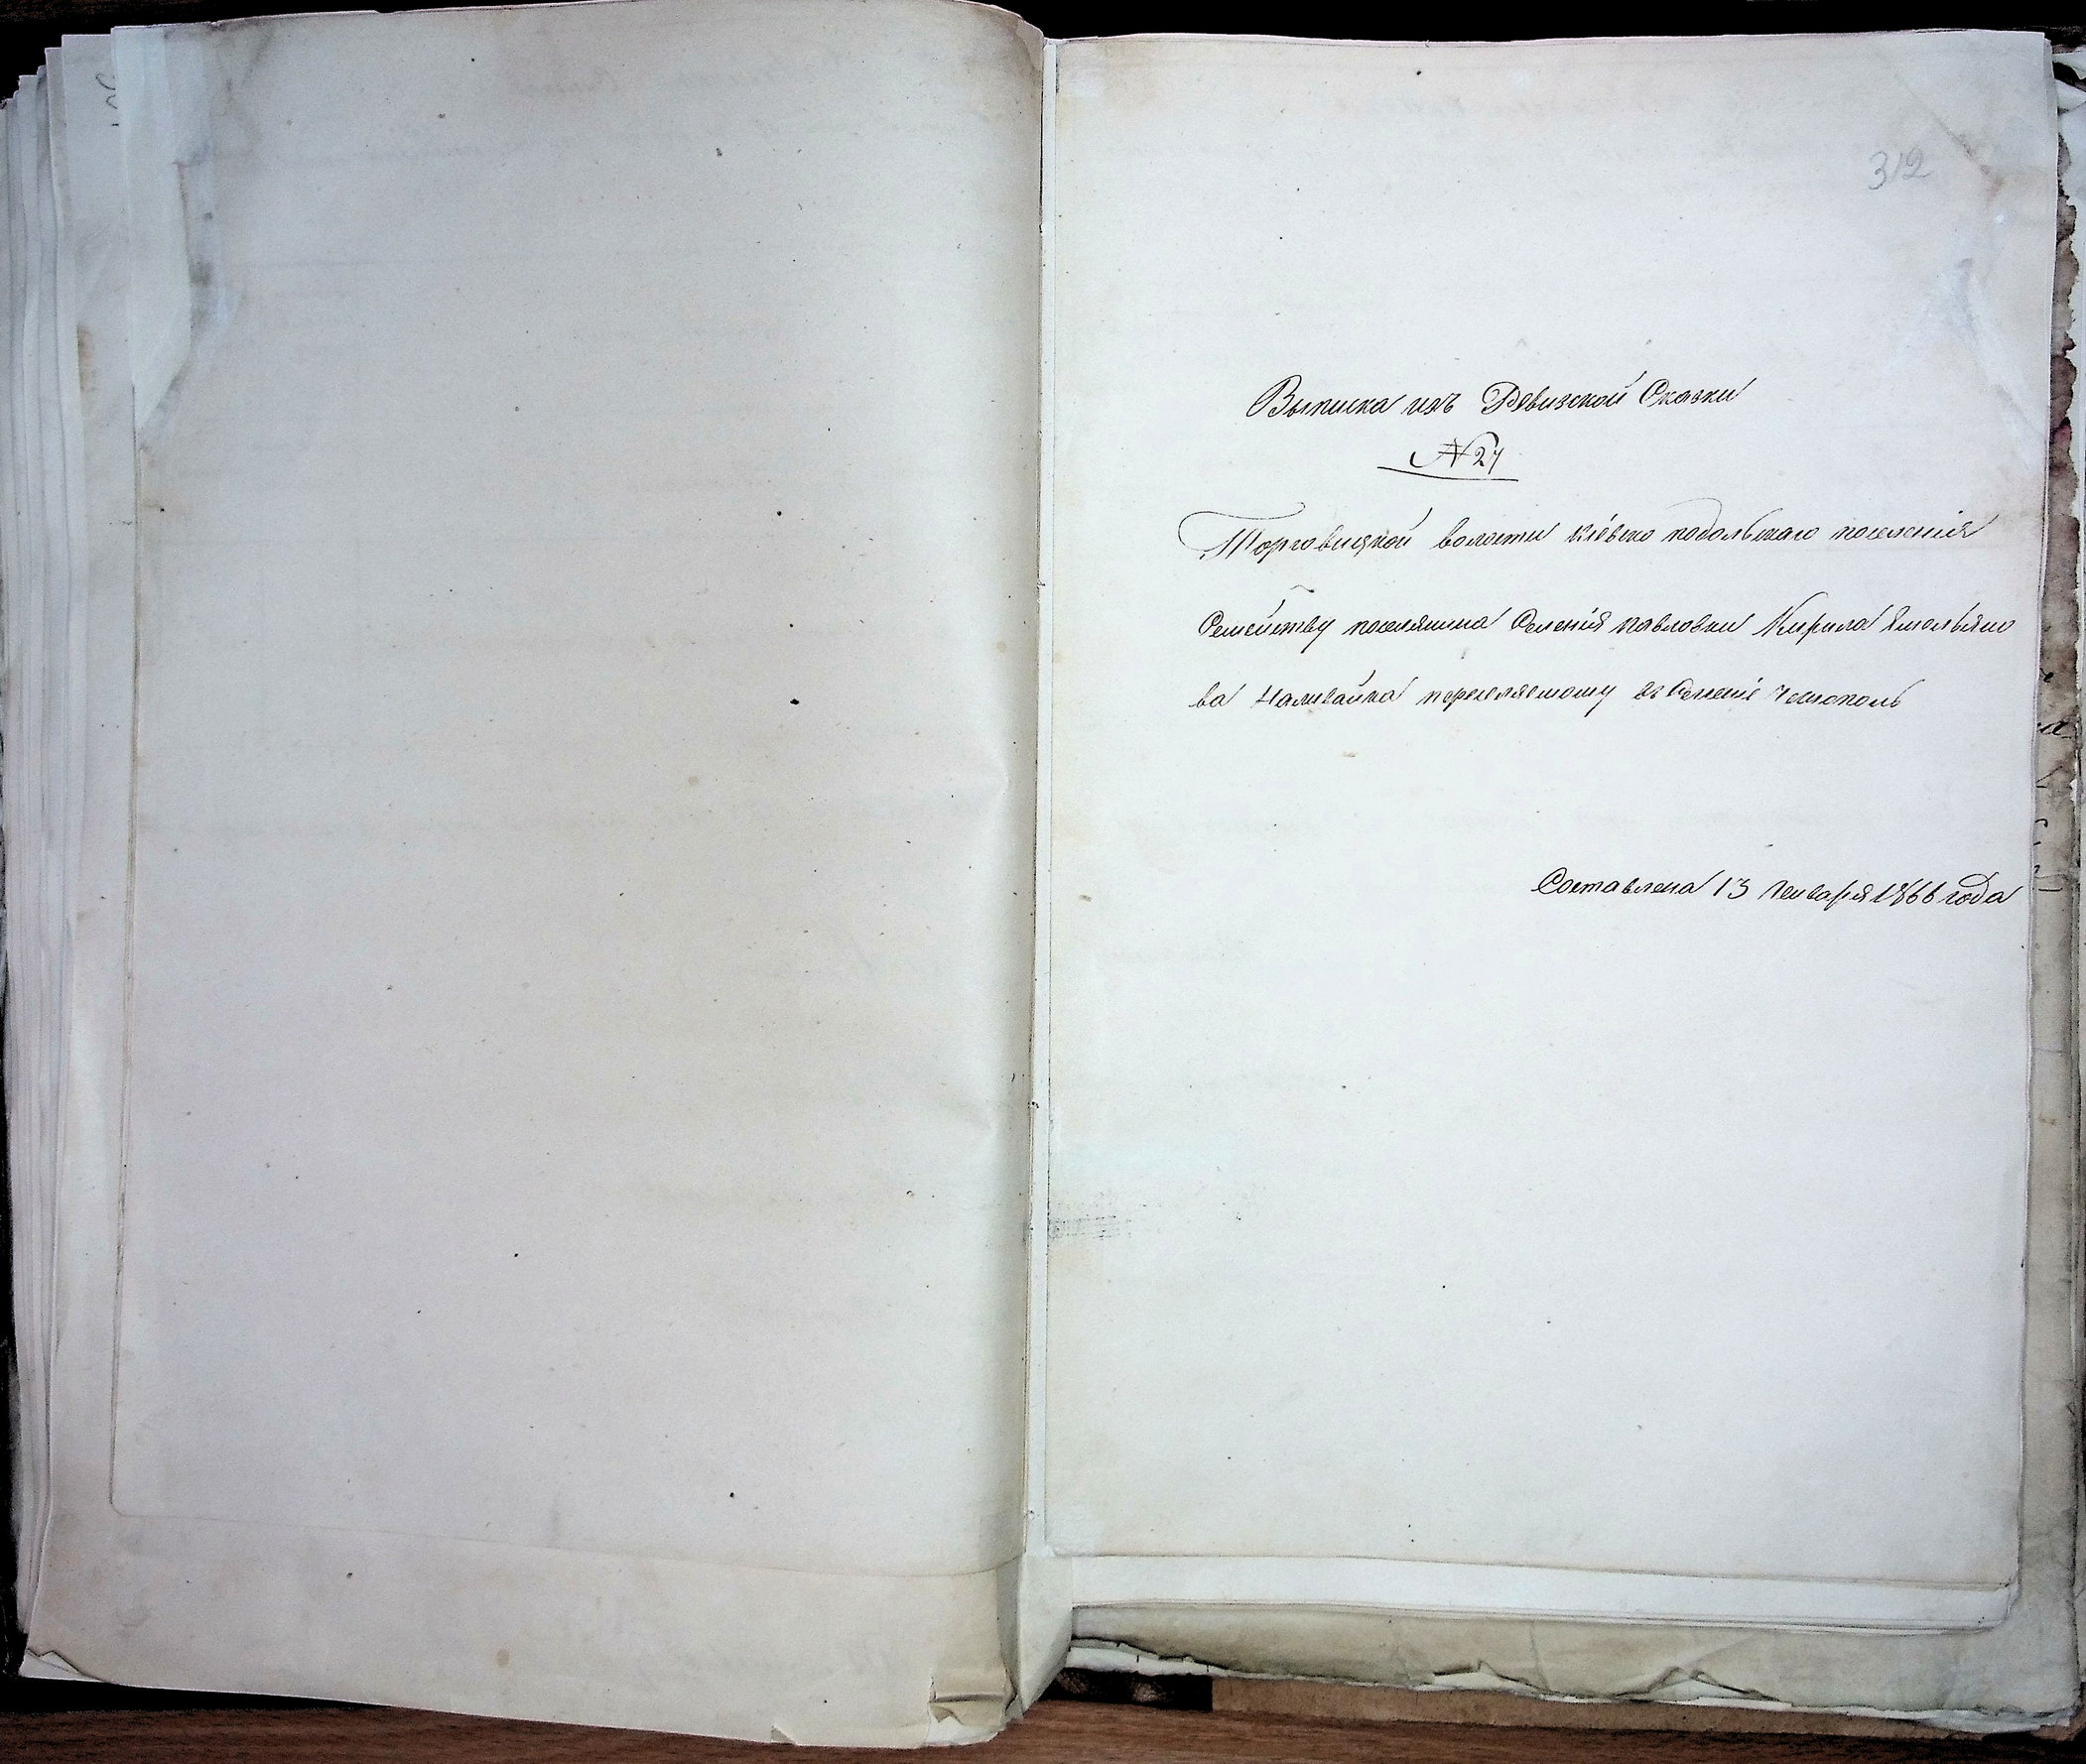 312
Выписка изъ Ревизской Сказки
№ 27
Торговицкой волости кіевско подольскаго поселенія
Семейству поселянина Селенія павловки Кирила Ямольяно
ва Наливайка переселяемому въ Селеніе
Составлена 13 Января 1866 года